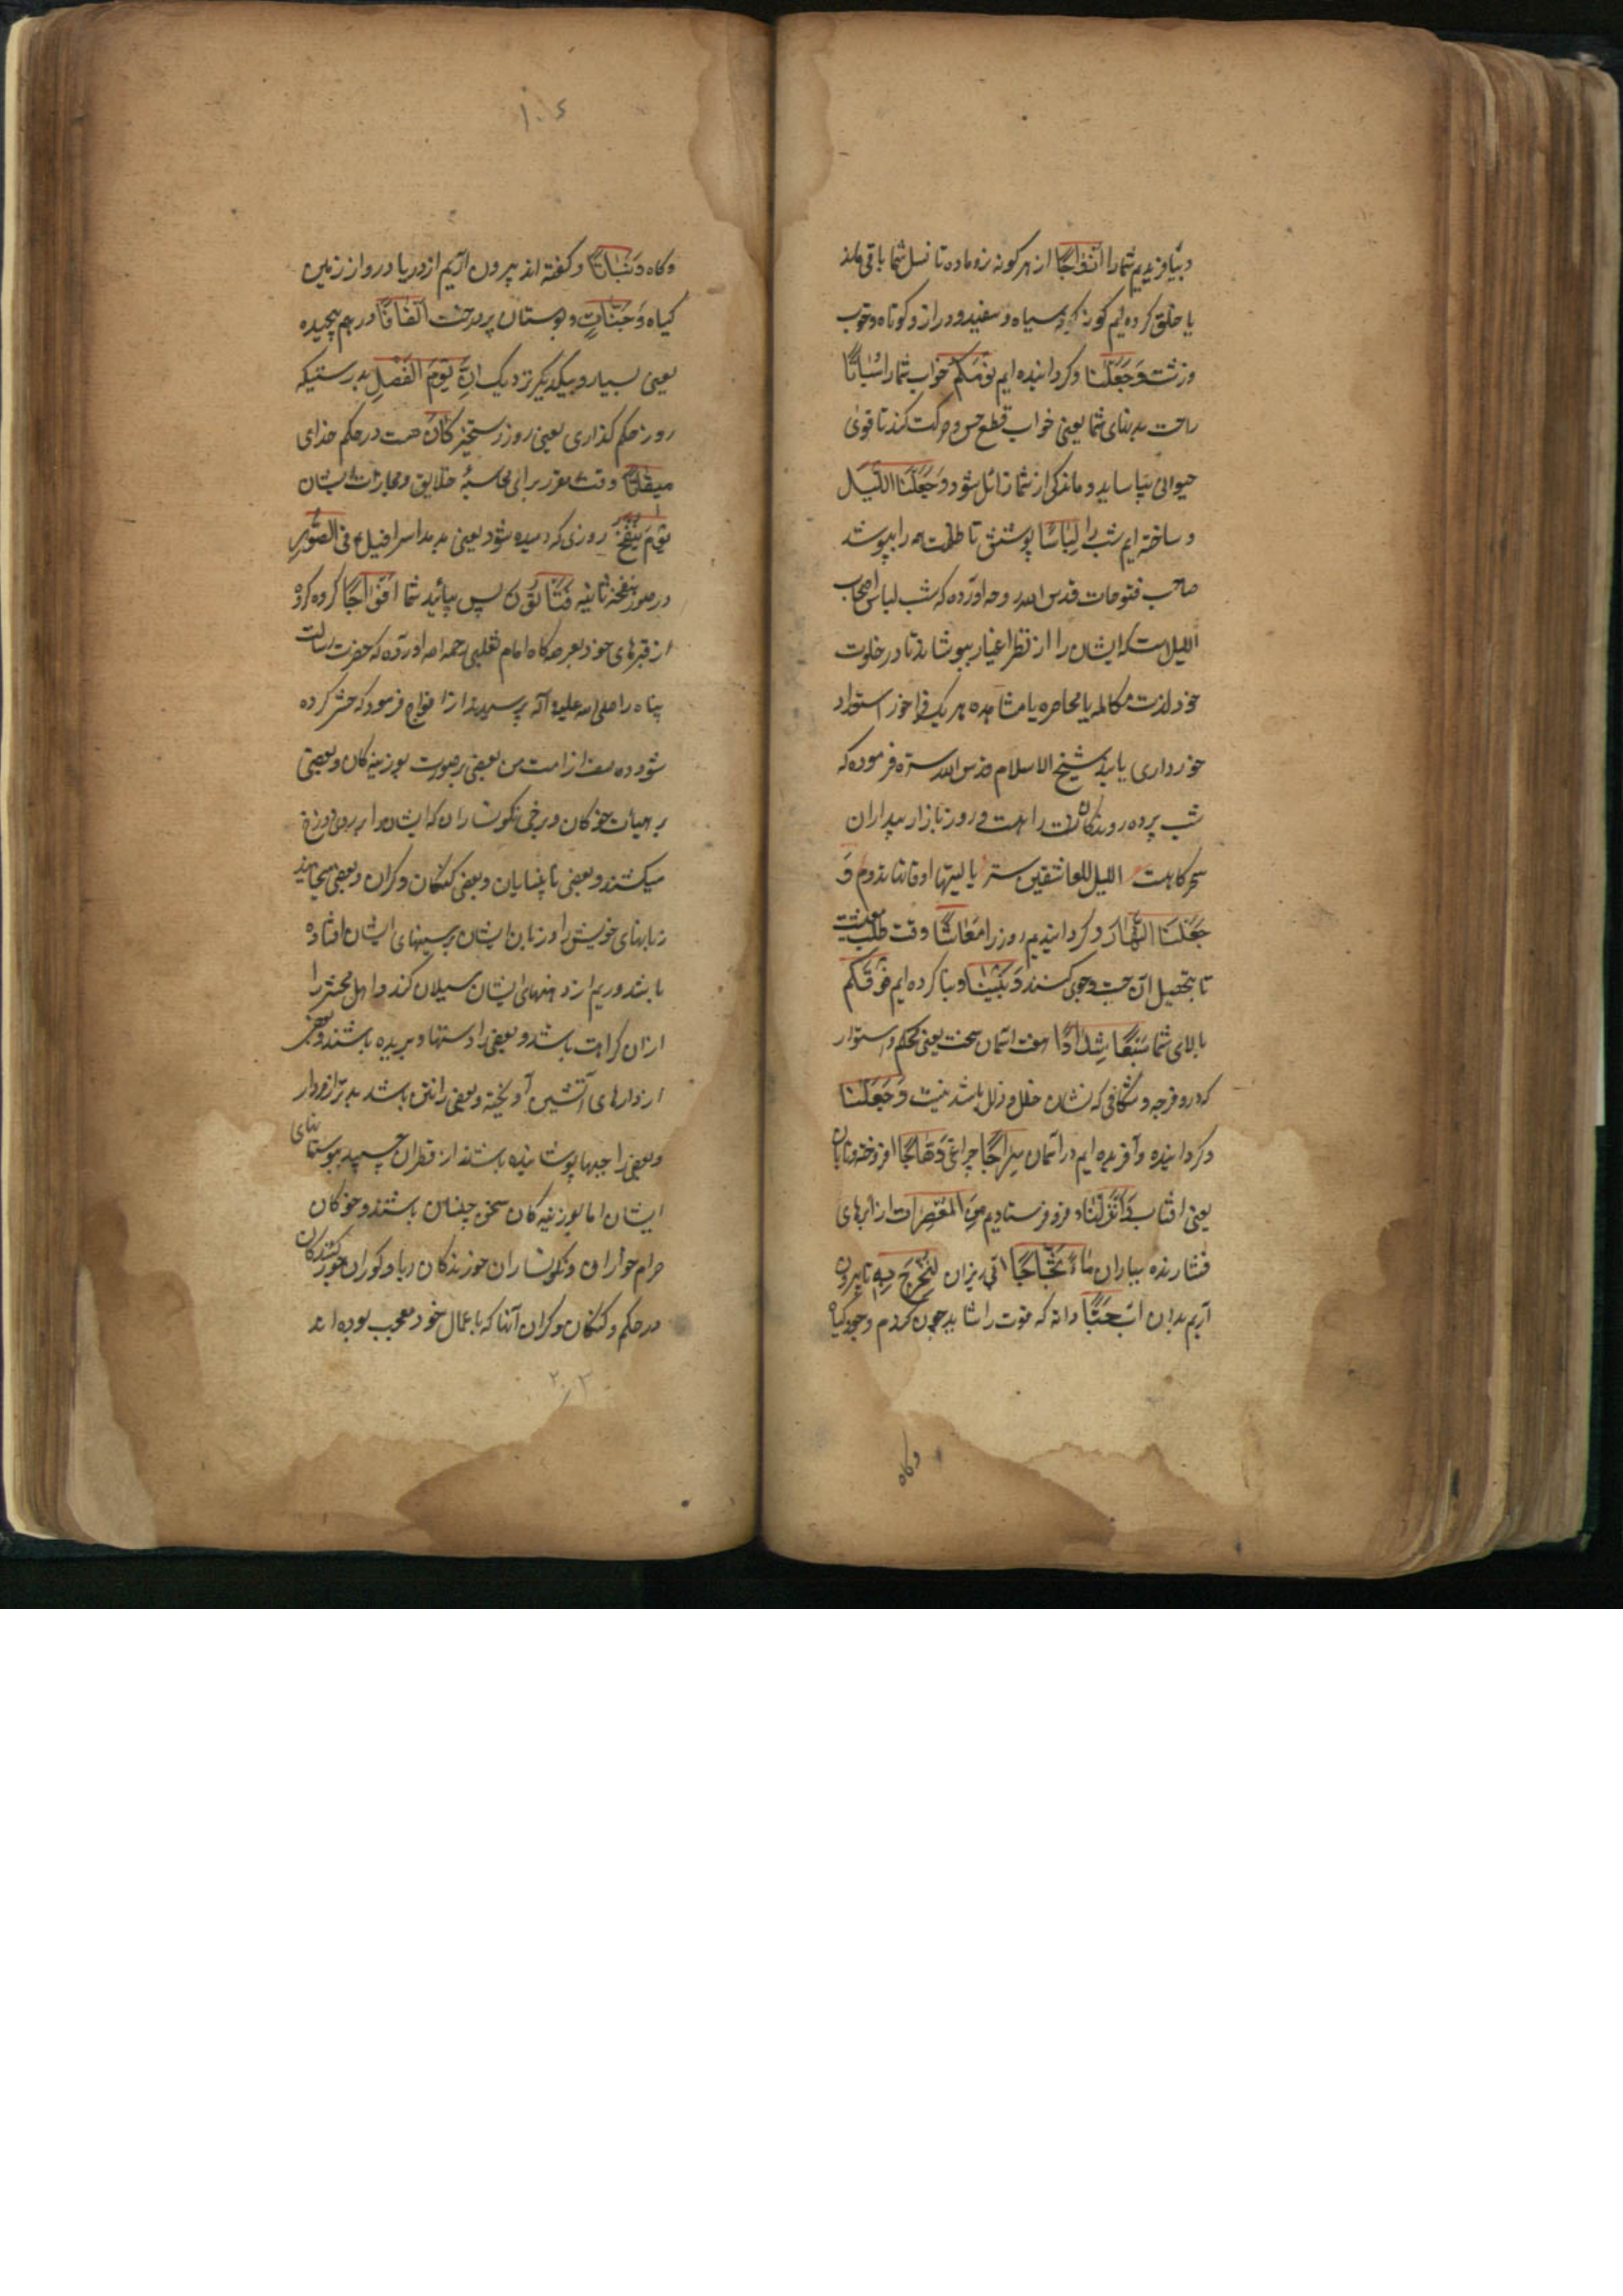 وبیافریدیم شما را ازواجا از هر کونه نر و ماده تا نسل شما باقی ماند
یا خلق کرده ایم کونه کونه سیاه و سفید و دراز و کوتاه و خوب
و زشت وجعلنا و کردانیده ایم نومکم خواب شما را سباتا
راحت بدنهای شما یعنی خواب قطع حس و حرکت کند تا قوی
حیوانی بیاساید و ماندکی از شما زائل شود وجعلنا اللیل
و ساخته ایم شب را لباسا پوششی تا بظلمت همه را بپوشد
صاحب فتوحات قدس الله روحه اورده که شب لباس اصحاب
اللیل است که ایشان را از نظر اغیار بپوشاند تا در خلوت
خود لذت مکالمه یا محاضره یا مشاهده هر یک فراخور استعداد
خود داری یابند شیخ الاسلام قدس الله سره فرموده که
شب پرده روندکان راهست و روز بازار بیداران
سحرکاهست اللیل للعاشقین ستر یا لیتها اوقاتنا تدوم و
جعلنا النهار و کردانیدیم روز را معاشا وقت طلب معیشت
تا بتحصیل آن جست و جوی کنند وبنینا و بنا کرده ایم فوقکم
بالای شما سبعا شدادا هفت آسمان سخت یعنی محکم و استوار
که درو فرجه و شکافی که نشان خلل و زلل باشد نیست وجعلنا
و کردانیده و آفریده ایم در آسمان سراجا چراغی وهاجا افروخته و تابان
یعنی افتاب وانزلنا و فرو فرستادیم من المعصرات از ابرهای
فشارنده بباران ماء ثجاجا آبی ریزان لنخرج به تا بیرون
آریم بدان آب حبا دانه که قوت را شاید چون کندم و جو
وکاه
۱۰۴
وکاه ونباتا و کفته اند بیرون آریم از دریا در و از زمین
کیاه وجنات و بوستان پردرخت الفافا درهم پیچیده
یعنی بسیار و بیکدیکر نزدیک ان یوم الفصل بدرستیکه
روز حکم کذاری یعنی روز رستخیز کان هست در حکم خدای
میقاتا وقت مقرر برای محاسبۀ خلایق و مجازات ایشان
یوم ینفخ روزی که دمیده شود یعنی بدمد اسرافیل فی الصور
در صور نفخۀ ثانیه فتأتون پس بیائید شما افواجا کروه کروه
از قبرهای خود بعرصه کاه امام ثعلبی رحمه الله اورده که حضرت رسالت
پناه را صلی الله علیه و آله پرسیدند از افواج فرمود که حشر کرده
شود ده صف از امت من بعضی بر صورت بوزینه کان و بعضی
بر هیأت خوکان و برخی نکونساران که ایشانرا بر روی بدوزخ
میکشند و بعضی نابینایان و بعضی کنکان و کران و بعضی میخایند
زبانهای خویش را و زبان ایشان بر سینهای ایشان افتاده
باشد و ریم از دهنهای ایشان سیلان کند و اهل محشر را
از ان کراهت باشد و بعضی را دستها و بریده باشند و بعضی
از دارهای آتشین آویخته و بعضی را نتن باشد بدتر از مردار
و بعضی را جبها پوشانیده باشند از قطران چسپیده بپوستهای
ایشان اما بوزینه کان سخن چینان باشند و خوکان
حرام خواران و نکونساران خورندکان ربا و کوران جورکنندکان
در حکم و کنکان و کران آنانکه باعمال خود معجب بوده اند